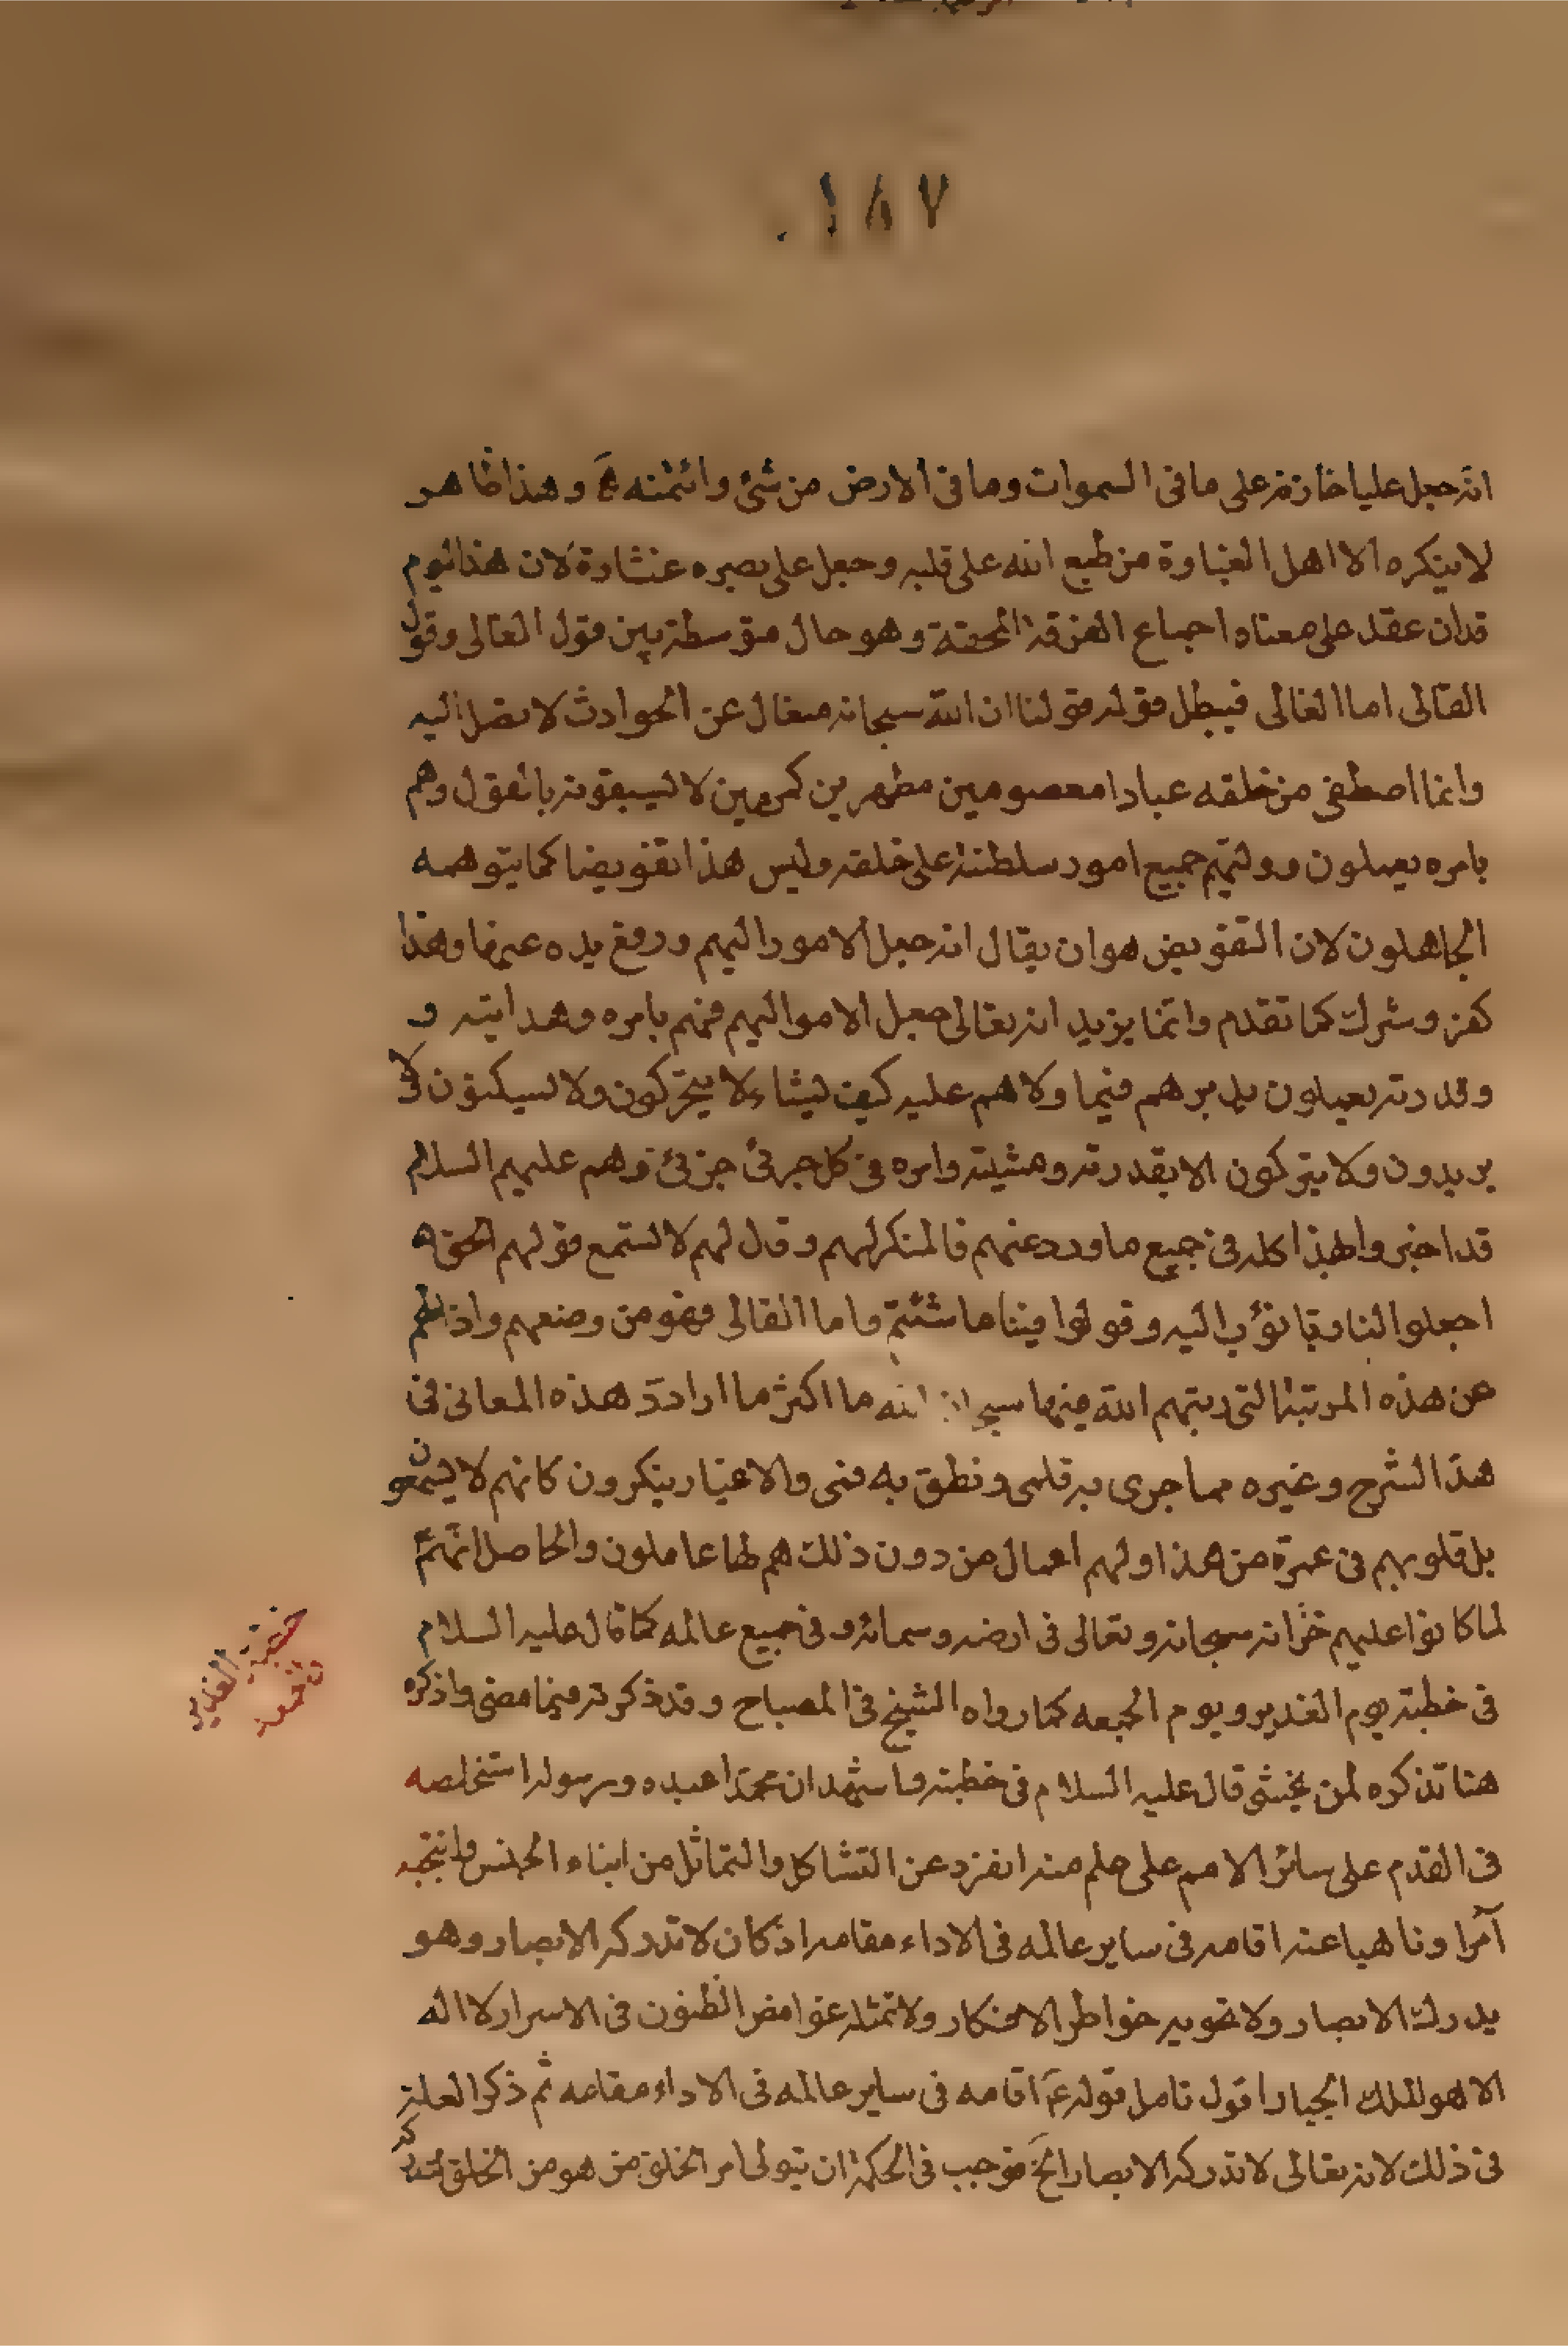 ١٨٧
انه جعل عليا خازنه على ما في السموات وما في الارض من شئ وائتمنه وهذا ظاهر
لا ينكره الا اهل الغباوة من طبع الله على قلبه وجعل على بصره غشاوة لان هذا اليوم
قد انعقد على معناه اجماع الفرقة المحقة وهو حال متوسطة بين قول الغالى وقول
القالى اما الغالى فيبطل قوله قولنا ان الله سبحانه متعال عن الحوادث لا تصل اليه
وانما اصطفى من خلقه عبادا معصومين مطهرين مكرمين لا يسبقونه بالقول وهم
بامره يعملون وولّيهم جميع امور سلطنته على خلقه وليس هذا تفويضا كما يتوهمه
الجاهلون لان التفويض هو ان يقال انه جعل الامور اليهم ورفع يده عنها وهذا
كفر وشرك كما تقدم وانما يريد انه تعالى جعل الامور اليهم فهم بامره وهدايته و
وقدرته يعملون يدبرهم فيما ولاهم عليه كيف يشاء لا يتحركون ولا يسكنون ولا
يريدون ولا يتركون الا بقدرته ومشيته وامره في كل جزئى جزئى وهم عليهم السلام
قد اخبروا بهذا كله في جميع ما ورد عنهم فالمنكر لهم وقال لهم لا نستمع قولهم الحق
اجعلوا لنا ربا نؤب اليه وقولوا فينا ما شئتم واما القالى فهو من وضعهم وازالهم
عن هذه المرتبة التى رتبهم الله فيها سبحان الله ما اكثر ما اردد هذه المعانى في
هذا الشرح وغيره مما جرى به قلمى ونطق به فمى والاغيار ينكرون كانهم لا يسمعون
بل قلوبهم في غمرة من هذا ولهم اعمال من دون ذلك هم لها عاملون والحاصل انهم
لما كانوا عليهم خزانه سبحانه وتعالى في ارضه وسمائه وفى جميع عالمه كما قال عليه السلام
في خطبته يوم الغدير ويوم الجمعه كما رواه الشيخ في المصباح وقد ذكرته فيما مضى واذكره
هنا تذكره لمن يخشى قال عليه السلام في خطبته واشهد ان محمدا عبده ورسوله استخلصه
في القدم على سائر الامم على علم منه انفرد عن التشاكل والتماثل من ابناء الجنس وانتجبه
آمرا وناهيا عنه اقامه في ساير عالمه في الاداء مقامه اذ كان لا تدركه الابصار وهو
يدرك الابصار ولا تحويه خواطر الافكار ولا تمثله غوامض الظنون في الاسرار لا اله
الا هو الملك الجبار اقول تامل قوله ع اقامه في ساير عالمه في الاداء مقامه ثم ذكر العلة
في ذلك لانه تعالى لا تدركه الابصار الخ فوجب في الحكمة ان يتولى امر الخلق من هو من الخلق